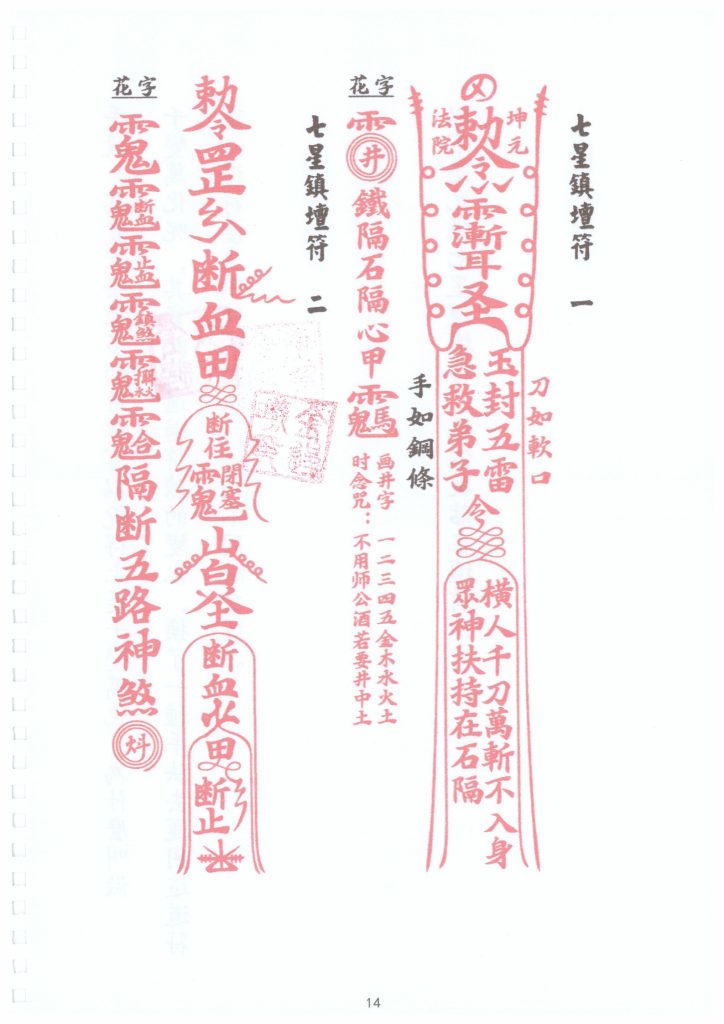 七星鎮壇符 一
坤元
法院
勅令
圣
玉封五雷
急救弟子
令
橫人千刀萬斬不入身
眾神扶持在石隔
刀如軟口
手如鋼條
花字
井
鐵隔石隔心甲
画井字 一二三四五金木水火土
时念咒：不用师公酒若要井中土
七星鎮壇符 二
勅令罡
断血田
断住
閉塞
断血
田
断止
花字
断血
止血
鎮煞
隔断五路神煞